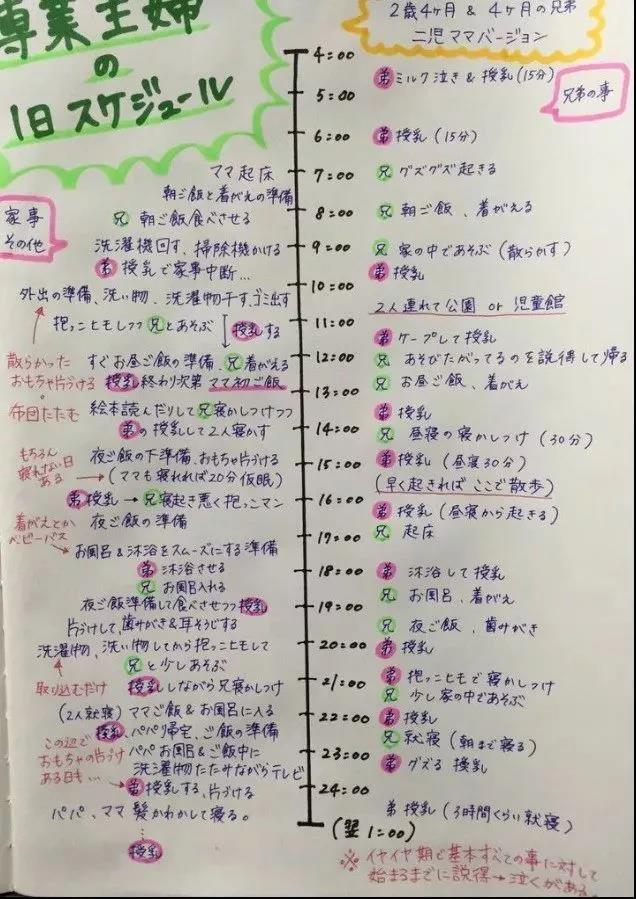 専業主婦
の
1日スケジュール
2歳4ヶ月 & 4ヶ月の兄弟
二児ママバージョン
家事
その他
兄弟の事
4:00
弟 ミルク泣き & 授乳(15分)
5:00
6:00
弟 授乳(15分)
ママ起床
7:00
兄 グズグズ起きる
朝ご飯と着がえの準備
兄 朝ご飯食べさせる
8:00
兄 朝ご飯、着がえる
洗濯機回す、掃除機かける
9:00
兄 家の中であそぶ(散らかす)
弟 授乳で家事中断…
弟 授乳
外出の準備、洗い物、洗濯物干す、ゴミ出す
10:00
2人連れて公園 or 児童館
抱っこヒモしつつ兄とあそぶ 授乳する
11:00
弟 ケープして授乳
散らかった
おもちゃ片づける
すぐお昼ご飯の準備、兄着がえる
12:00
兄 あそびたがってるのを説得して帰る
授乳終わり次第 ママ初ご飯
兄 お昼ご飯、着がえ
13:00
布団たたむ
絵本読んだりして兄寝かしつけつつ
弟 授乳
弟の授乳して2人寝かす
14:00
兄 昼寝の寝かしつけ(30分)
もちろん
寝れない日
ある
夜ご飯の下準備、おもちゃ片づける
15:00
弟 授乳(昼寝30分)
(ママも寝れれば20分仮眠)
(早く起きればここで散歩)
弟 授乳→兄寝起き悪く抱っこマン
16:00
弟 授乳(昼寝から起きる)
着がえとか
ベビーバス
夜ご飯の準備
17:00
兄 起床
お風呂&沐浴をスムーズにする準備
弟 沐浴させる
18:00
弟 沐浴して授乳
兄 お風呂入れる
兄 お風呂、着がえ
夜ご飯準備して食べさせつつ授乳
19:00
片づけして、歯みがき&耳そうじする
兄 夜ご飯、歯みがき
洗濯物、洗い物してから抱っこヒモして
20:00
弟 授乳
兄と少しあそぶ
取り込むだけ
授乳しながら兄寝かしつけ
21:00
弟 抱っこヒモで寝かしつけ
兄 少し家の中であそぶ
(2人就寝) ママご飯&お風呂に入る
22:00
弟 授乳
授乳、パパ帰宅、ご飯の準備
兄 就寝(朝まで寝る)
この辺で
おもちゃの片づけ
ある日も…
パパお風呂&ご飯中に
23:00
洗濯物たたみながらテレビ
弟 グズる 授乳
弟 授乳する、片づける
24:00
パパ、ママ髪かわかして寝る。
弟 授乳(3時間くらい就寝)
(翌1:00)
授乳
※イヤイヤ期で基本すべての事に対して
始まるまでに説得→泣くがある。